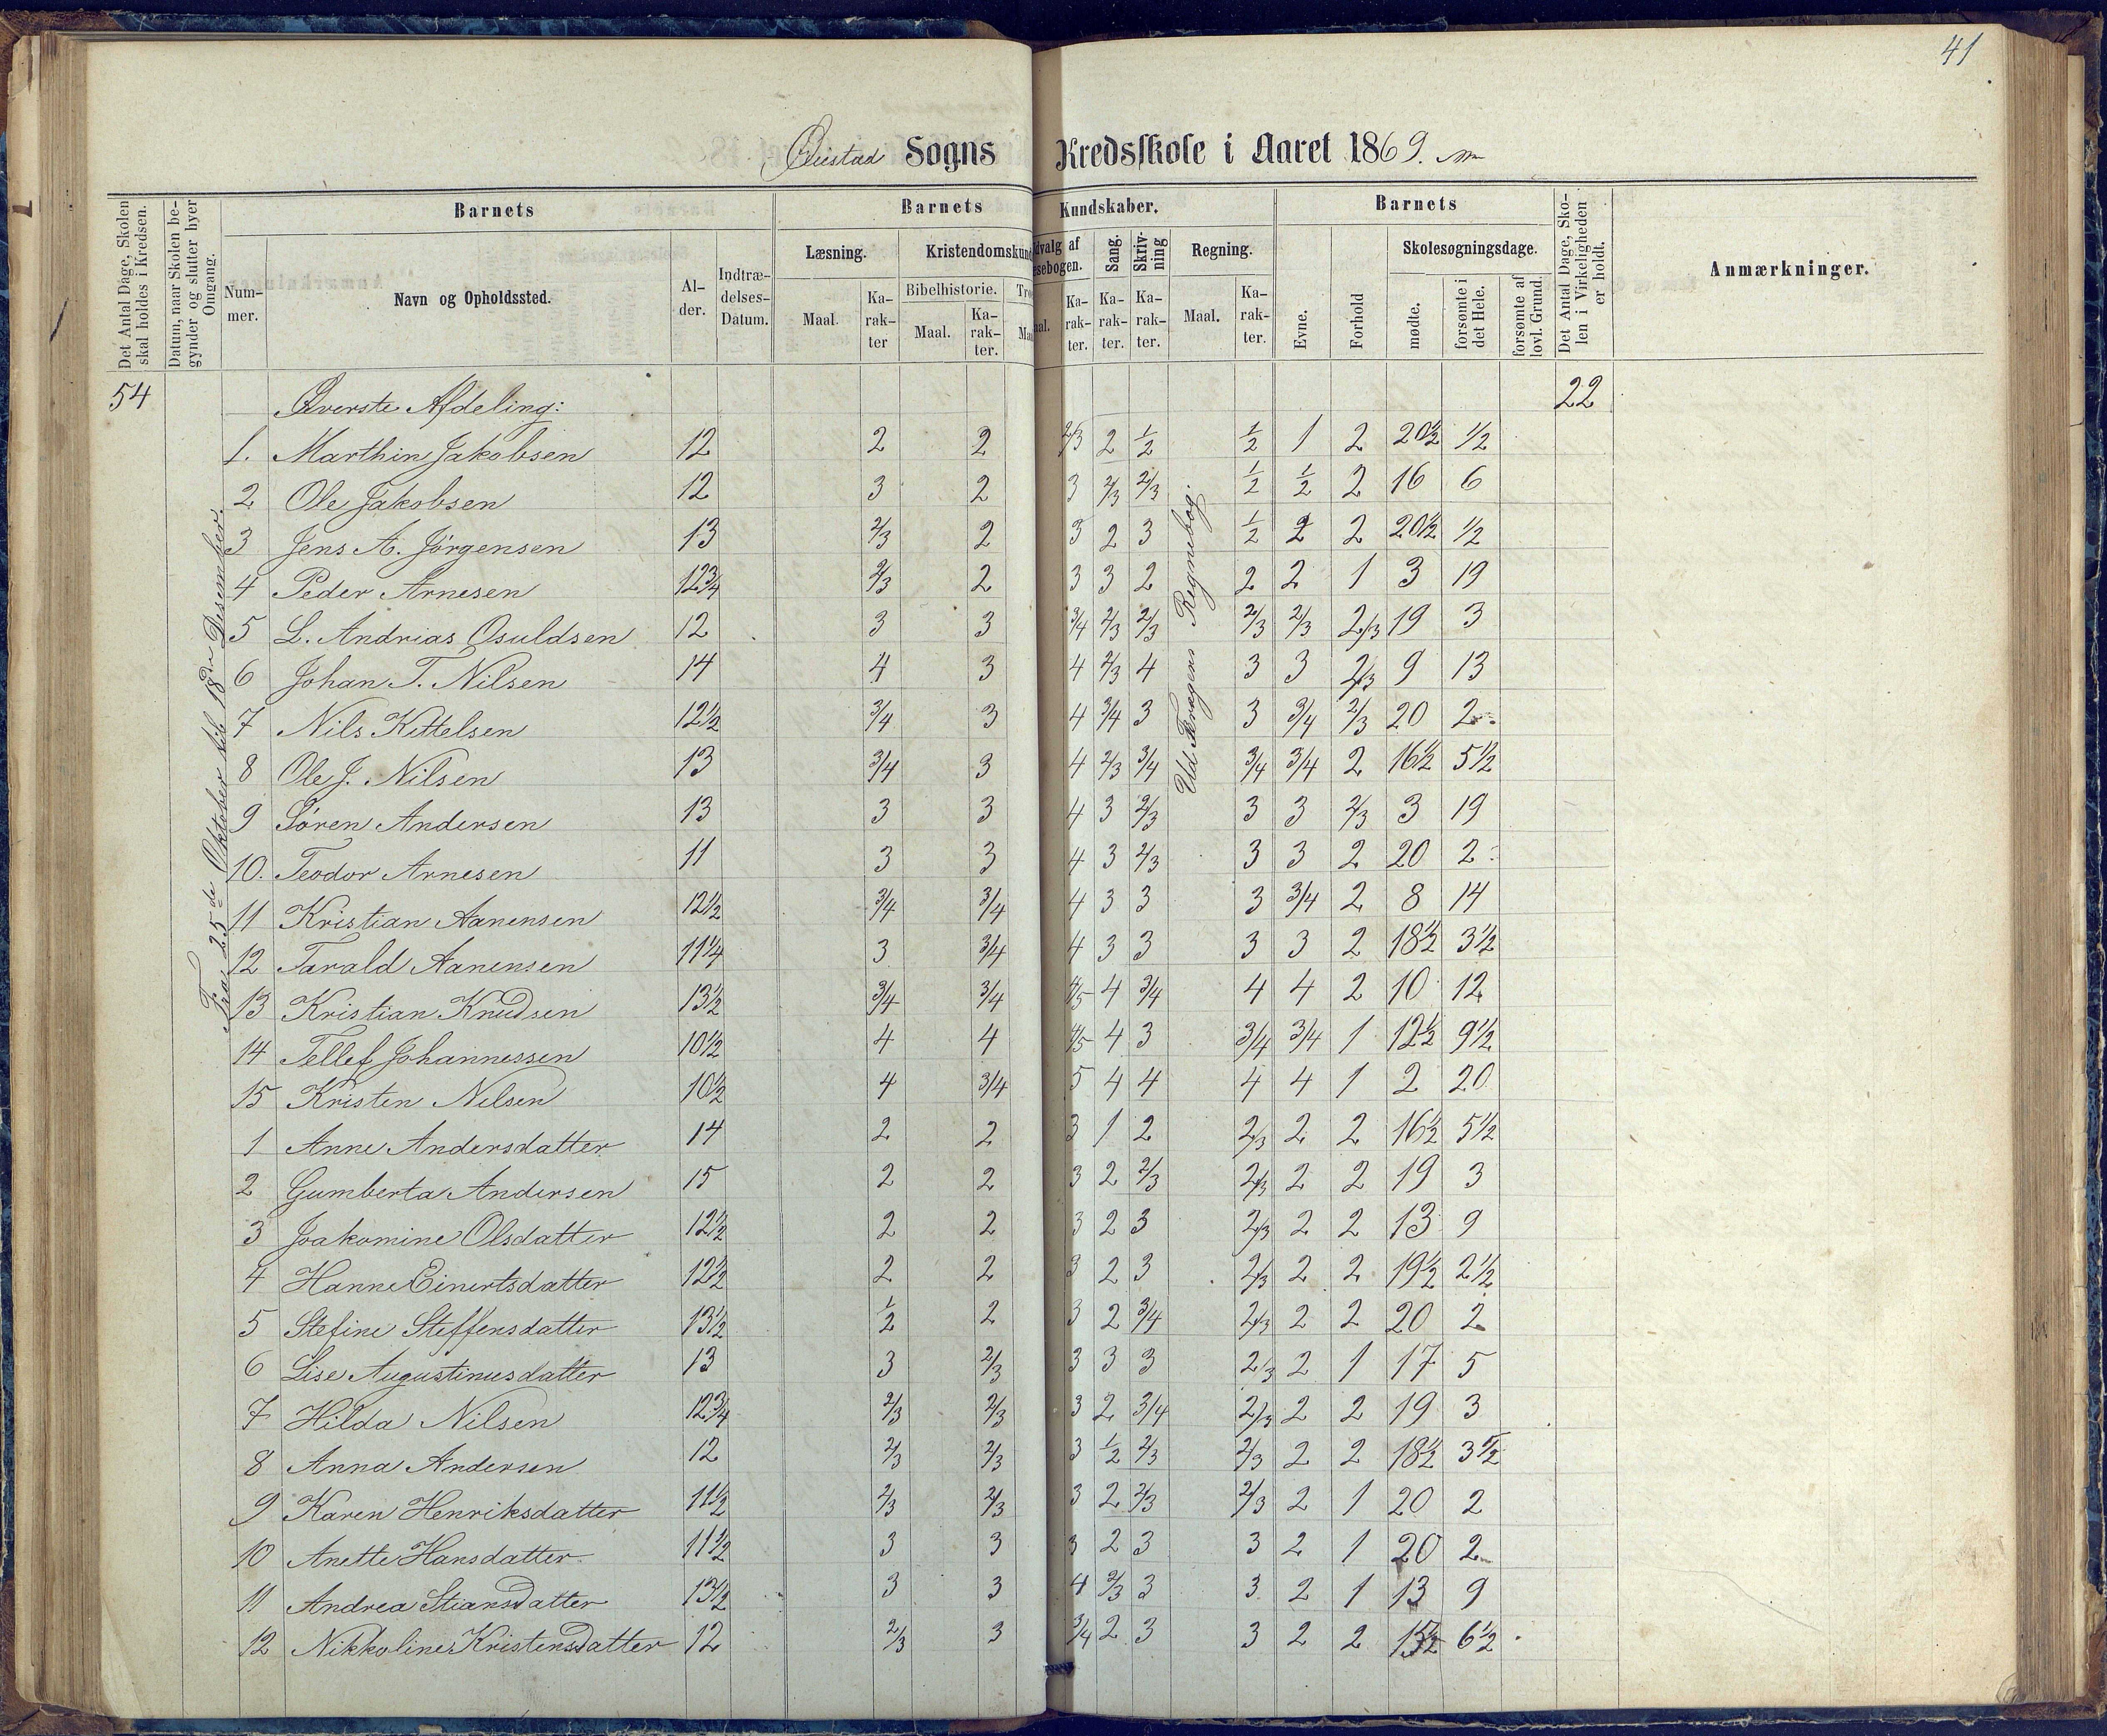 41
Sogns Kredsskole i Aaret 1869.
Det Antal Dage, Skolen skal holdes i Kredsen.
Datum, naar Skolen begynder og slutter hver Omgang.
Barnets
Nummer.
Navn og Opholdssted.
Alder.
Indtrædelses-Datum.
Barnets Kundskaber.
Læsning.
Maal.
Karakter
Kristendomskund
Bibelhistorie.
Maal.
Karakter.
Tro
Maa
dvalg af
sebogen.
al.
Karakter.
Sang.
Karakter.
Skrivning
Karakter.
Regning.
Maal.
Karakter.
Barnets
Evne.
Forhold
Skolesøgningsdage.
mødte.
forsømte i det Hele.
forsømte af lovl. Grund.
Det Antal Dage, Skolen i Virkeligheden er holdt.
Anmærkninger.
54 Øverste Afdeling: 22
Fra 25de Oktober til 18de Desember.
Regnebog.
1. Marthin Jakobsen 12 2 2 2/3 2 1/2 1/2 1 2 20 1/2 1/2
2 Ole Jakobsen 12 3 2 3 2/3 2/3 1/2 1/2 2 16 6
3 Jens A. Jörgensen 13 2/3 2 3 2 3 1/2 2 2 20 1/2 1/2
4 Peder Arnesen 12 3/4 2/3 2 3 3 2 2 2 1 3 19
5 L. Andrias Osuldsen 12 3 3 3/4 2/3 2/3 2/3 2/3 2/3 19 3
6 Johan T. Nilsen 14 4 3 4 2/3 4 3 3 2/3 9 13
7 Nils Kittelsen 12 1/2 3/4 3 4 3/4 3 3 3/4 2/3 20 2
8 Ole J. Nilsen 13 3/4 3 4 2/3 3/4 3/4 3/4 2 16 1/2 5 1/2
9 Sören Andersen 13 3 3 4 3 2/3 3 3 2/3 3 19
10. Teodor Arnesen 11 3 3 4 3 2/3 3 3 2 20 2
11 Kristian Aanensen 12 1/2 3/4 3/4 4 3 3 3 3/4 2 8 14
12 Tarald Aanensen 11 1/4 3 3/4 4 3 3 3 3 2 18 1/2 3 1/2
13 Kristian Knudsen 13 1/2 3/4 3/4 4/5 4 3/4 4 4 2 10 12
14 Tellef Johannessen 10 1/2 4 4 4/5 4 3 3/4 3/4 1 12 1/2 9 1/2
15 Kristen Nilsen 10 1/2 4 3/4 5 4 4 4 4 1 2 20
1 Anne Andersdatter 14 2 2 3 1 2 2/3 2 2 16 1/2 5 1/2
2 Gumberta Andersen 15 2 2 3 2 2/3 2/3 2 2 19 3
3 Joakomine Olsdatter 12 1/2 2 2 3 2 3 2/3 2 2 13 9
4 Hanne Einertsdatter 12 1/2 2 2 3 2 3 2/3 2 2 19 1/2 2 1/2
5 Stefine Steffensdatter 13 1/2 1/2 2 3 2 3/4 2/3 2 2 20 2
6 Lise Augustinusdatter 13 3 2/3 3 3 3 2/3 2 1 17 5
7 Hilda Nilsen 12 3/4 2/3 2/3 3 2 3/4 2/3 2 2 19 3
8 Anna Andersen 12 2/3 2/3 3 1/2 2/3 2/3 2 2 18 1/2 3 1/2
9 Karen Henriksdatter 11 1/2 2/3 2/3 3 2 2/3 2/3 2 1 20 2
10 Anette Hansdatter 11 1/2 3 3 3 2 3 3 2 1 20 2
11 Andrea Stiansdatter 13 1/2 3 3 4 2/3 3 3 2 1 13 9
12 Nikkoline Kristensdatter 12 2/3 3 3/4 2 3 3 2 2 15 1/2 6 1/2